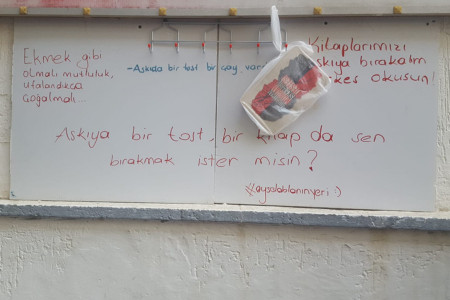 Ekmek gibi
olmalı mutluluk,
ufalandıkça
çoğalmalı...
-Askıda bir tost bir çay var
Kitaplarımızı
askıya bırakalım
okusun!
Askıya bir tost, bir kitap da sen
bırakmak ister misin?